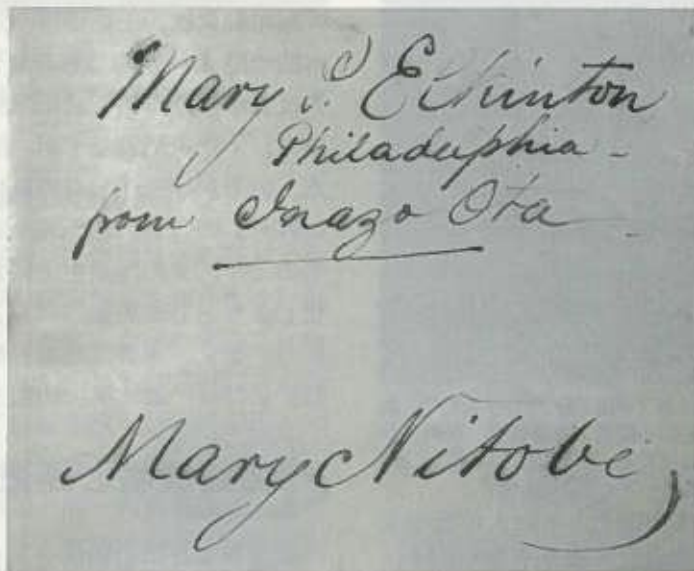 Mary P. Elkinton
Philadelphia -
from Inazo Ota
Mary Nitobe